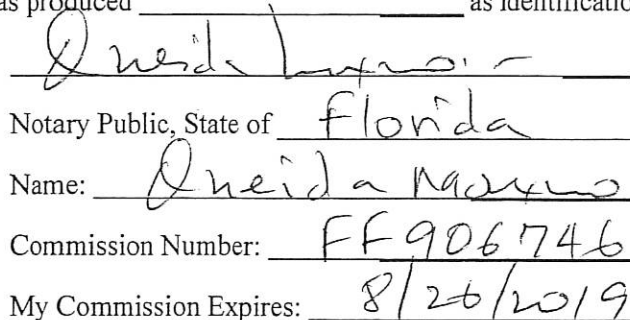 as produced ____________ as identification
Oneida
Notary Public, State of Florida
Name: Oneida
Commission Number: FF906746
My Commission Expires: 8/26/2019